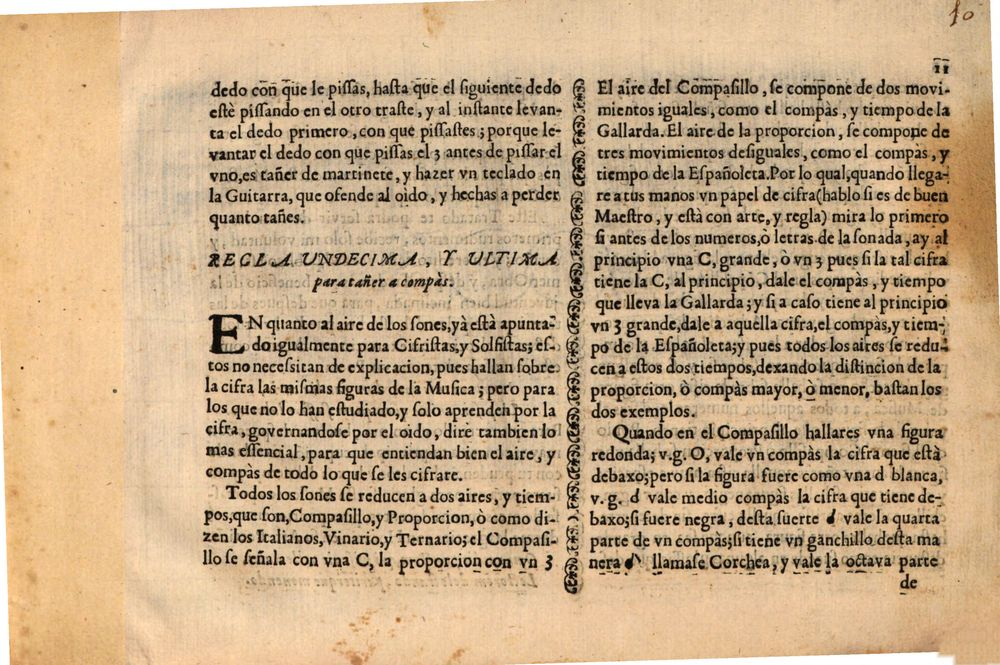 10
11
dedo con que le pissas, hasta que el siguiente dedo
estè pissando en el otro traste, y al instante levan-
ta el dedo primero, con que pissastes; porque le-
vantar el dedo con que pissas el 3 antes de pissar el
vno, es tañer de martinete, y hazer vn teclado en
la Guitarra, que ofende al oìdo, y hechas a perder
quanto tañes.
REGLA UNDECIMA, Y ULTIMA
para tañer a compàs.
EN quanto al aire de los sones, yà està apunta-
do igualmente para Cifristas, y Solfistas; es-
tos no necessitan de explicacion, pues hallan sobre
la cifra las mismas figuras de la Musica; pero para
los que no lo han estudiado, y solo aprenden por la
cifra, governandose por el oìdo, dirè tambien lo
mas essencial, para que entiendan bien el aire, y
compàs de todo lo que se les cifrare.
Todos los sones se reducen a dos aires, y tiem-
pos, que son, Compasillo, y Proporcion, ò como di-
zen los Italianos, Vinario, y Ternario; el Compasi-
llo se señala con vna C, la proporcion con vn 3
El aire del Compasillo, se compone de dos movi-
mientos iguales, como el compàs, y tiempo de la
Gallarda. El aire de la proporcion, se compone de
tres movimientos desiguales, como el compàs, y
tiempo de la Españoleta. Por lo qual, quando llega-
re a tus manos vn papel de cifra (hablo si es de buen
Maestro, y està con arte, y regla) mira lo primero
si antes de los numeros, ò letras de la sonada, ay al
principio vna C, grande, ò vn 3 pues si la tal cifra
tiene la C, al principio, dale el compàs, y tiempo
que lleva la Gallarda; y si a caso tiene al principio
vn 3 grande, dale a aquella cifra, el compàs, y tiem-
po de la Españoleta; y pues todos los aires se redu-
cen a estos dos tiempos, dexando la distincion de la
proporcion, ò compàs mayor, ò menor, bastan los
dos exemplos.
Quando en el Compasillo hallares vna figura
redonda; v.g. O, vale vn compàs la cifra que està
debaxo; pero si la figura fuere como vna d blanca,
v. g. d vale medio compàs la cifra que tiene de-
baxo; si fuere negra, desta suerte vale la quarta
parte de vn compàs; si tiene vn ganchillo desta ma
nera llamase Corchea, y vale la octava parte
de